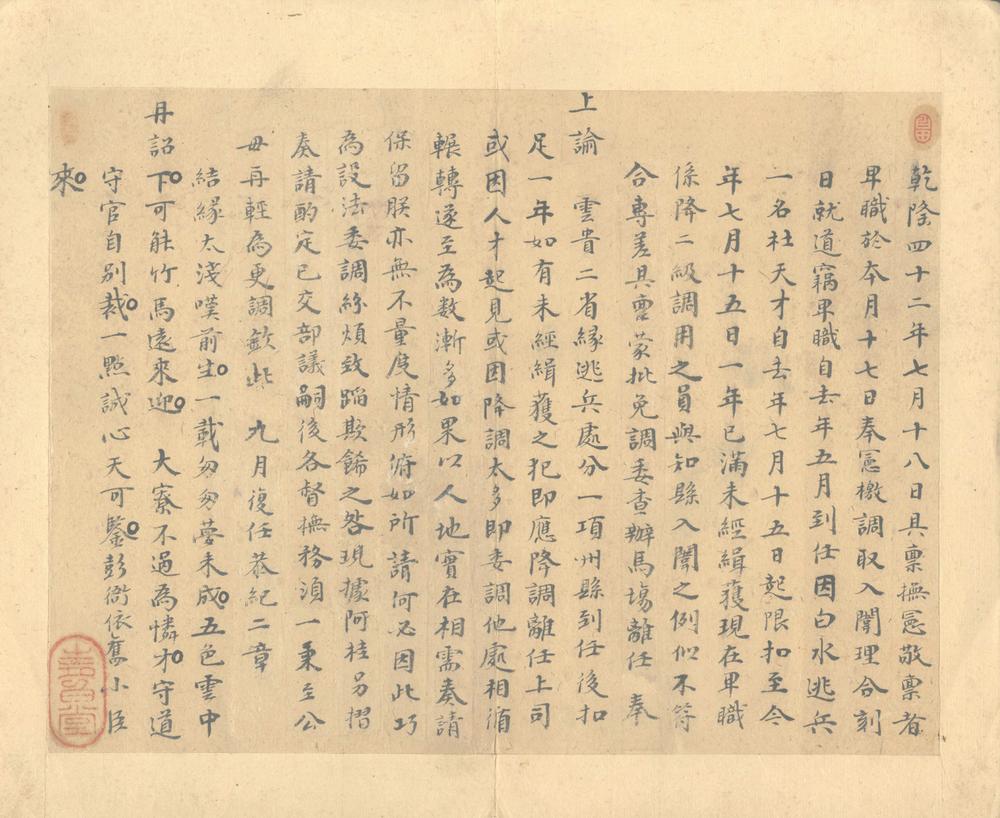 乾隆四十二年七月十八日具禀撫憲敬禀者
卑職於本月十七日奉憲檄調取入闈理合刻
日就道竊卑職自去年五月到任因白水逃兵
一名杜天才自去年七月十五日起限扣至今
年七月十五日一年已滿未經緝獲現在卑職
係降二級調用之員與知縣入闈之例似不符
合專差具禀蒙批免調委查辦馬塲離任 奉
上諭 雲貴二省緣逃兵處分一項州縣到任後扣
足一年如有未經緝獲之犯即應降調離任上司
或因人才起見或因降調太多即委調他處相循
輾轉遂至為數漸多如果以人地實在相需奏請
保留朕亦無不量度情形俯如所請何必因此巧
為設法委調紛煩致蹈欺餙之咎現據阿桂另摺
奏請酌定已交部議嗣後各督撫務須一秉至公
毋再輕為更調欽此 九月復任恭紀二章
結緣太淺嘆前生。一載匆匆夢未成。五色雲中
丹詔下。可能竹馬遠來迎。 大寮不過為憐才。守道
守官自別裁。一點誠心天可鑒。彭衙依舊小臣
來。